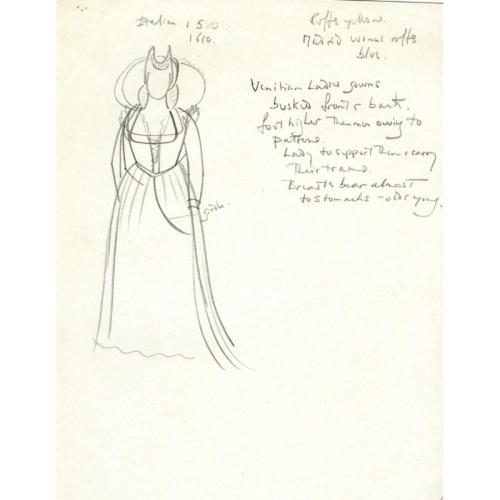 Italian 1580
1610.
Ruffs yellow.
Madrid womens ruffs
blue.
Venitian Ladies gowns
busked front & back.
foot higher than men owing to
pattens.
Lady to support them & carry
their trains.
Breasts bear almost
to stomachs - old & young.
girdle.